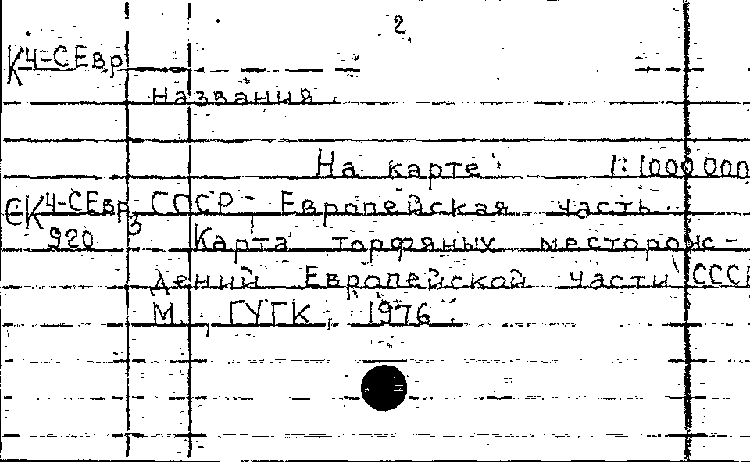 2
К 4-СЕвр
Названия
На карте: 1:1000 000
ЕК 4-СЕвр СССР - Европейская часть.
920 3 Карта торфяных месторож-
дений Европейской части СССР
М., ГУГК, 1976.